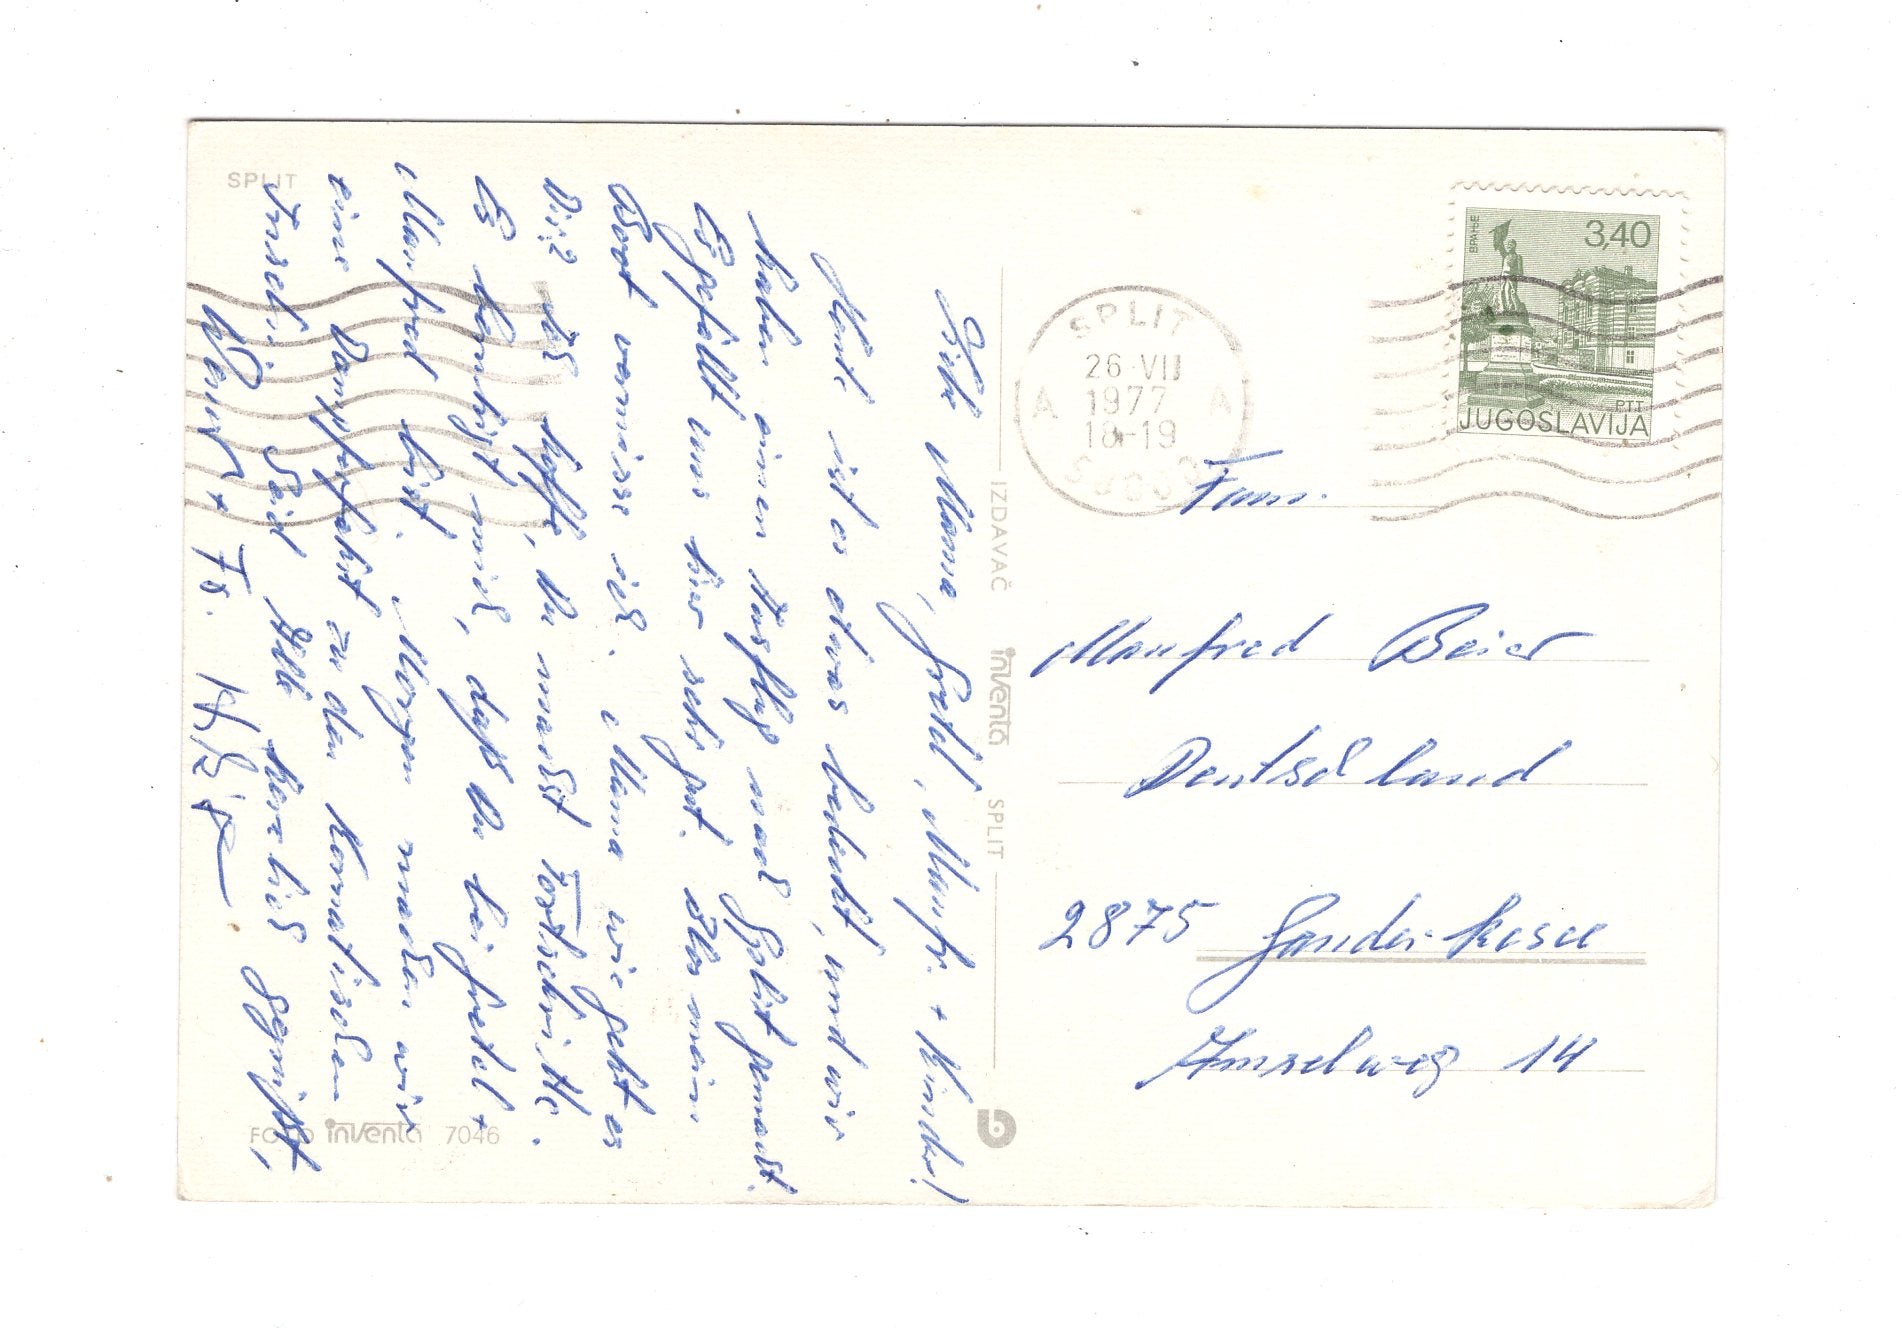 SPLIT
Liebe Mama, Gretel, Manfr. + Kinder!
Heute ist es etwas bedeckt, und wir
haben einen Ausflug nach Split gemacht.
Es gefällt uns hier sehr gut. Blos mein
Boot vermisse ich. Mama wie geht es
Dir? Ich hoffe, du machst Fortschritte.
Es beruhigt mich, daß du bei Gretel +
Manfred bist. Morgen machen wir
eine Dampferfahrt zu den Kornatischen
Inseln. Seid Alle herzlich gegrüßt,
FOTO inventa 7046
IZDAVAČ inventa SPLIT
SPLIT
26 VII
1977
18-19
A A
ВРАЊЕ
3,40
PTT
JUGOSLAVIJA
Fam.
Manfred Beier
Deutschland
2875 Ganderkesee
Amselweg 14